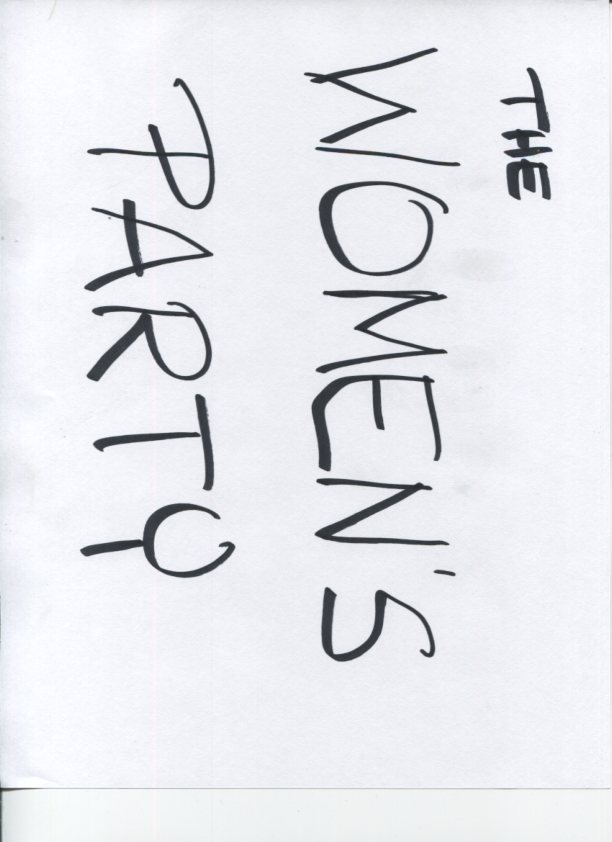 THE
WOMEN'S
PARTY